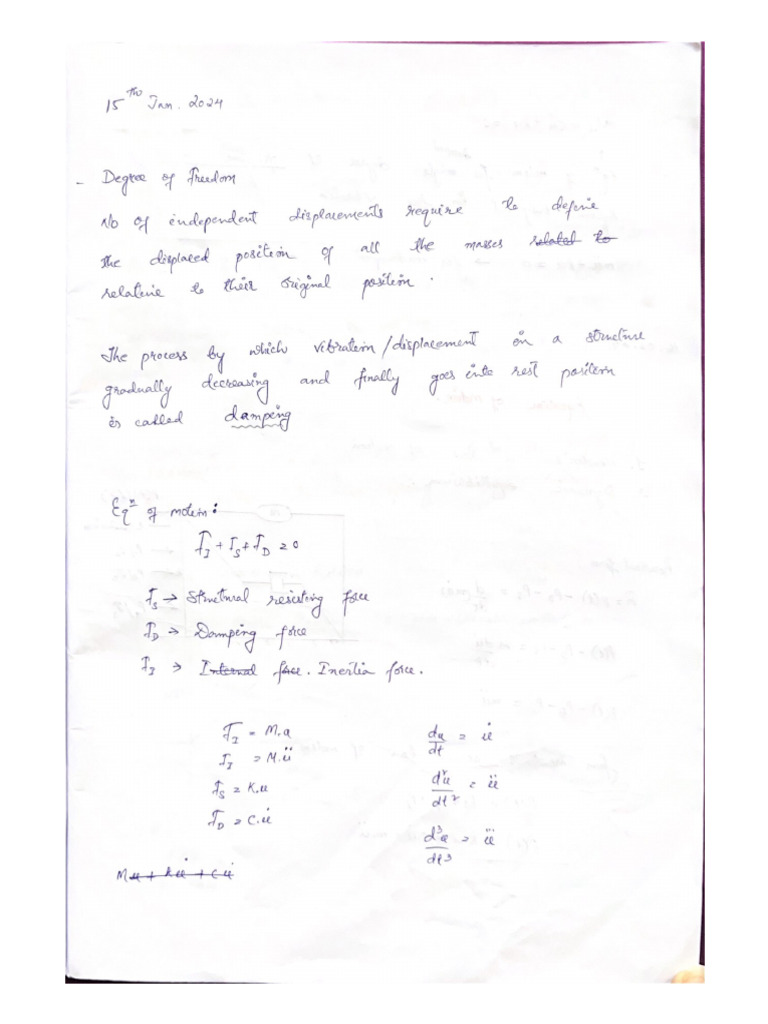 15th Jan. 2024
- Degree of freedom
No of independent displacements require to define
the displaced position of all the masses related to
relative to their original position.
The process by which vibration/displacement in a structure
gradually decreasing and finally goes into rest position
is called damping
Eqn of motion:
f_I + f_S + f_D = 0
f_S → Structural resisting force
f_D → Damping force
f_I → Internal force. Inertia force.
f_I = M.a
f_I = M.ü
f_S = K.u
f_D = C.u̇
du/dt = u̇
d²u/dt² = ü
d³u/dt³ = u⃛
Mu + Ku̇ + Cu̇